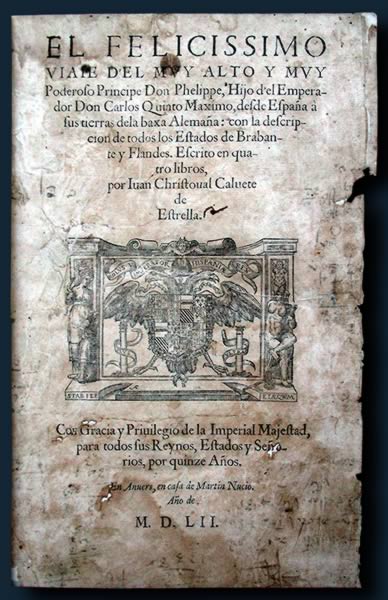 EL FELICISSIMO
VIAIE D'EL MVY ALTO Y MVY
Poderoso Principe Don Phelippe, Hijo d'el Empera-
dor Don Carlos Quinto Maximo, desde España à
sus tierras dela baxa Alemaña: con la descrip-
cion de todos los Estados de Braban-
te y Flandes. Escrito en qua-
tro libros,
por Iuan Christoual Caluete
de
Estrella.
Con Gracia y Priuilegio de la Imperial Majestad,
para todos sus Reynos, Estados y Seño-
rios, por quinze Años.
En Anuers, en casa de Martin Nucio.
Año de
M. D. LII.